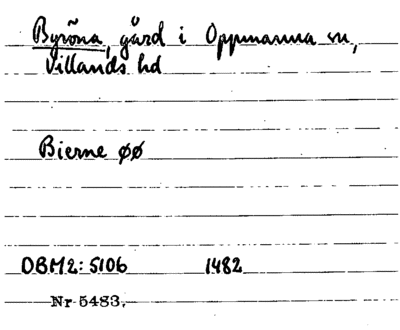 Byröna, gård i Oppmanna sn,
Villands hd
Bierne øø
DBM2: 5106 1482
Nr 5483.